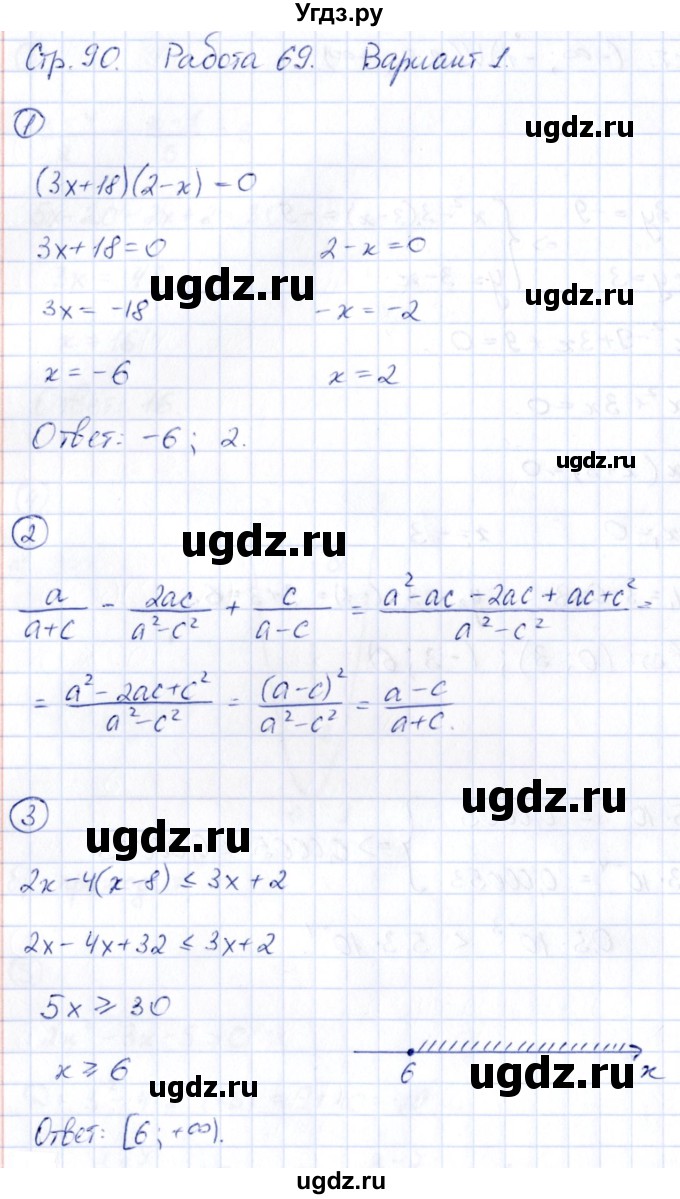 Угдз.ру
Стр. 90. Работа 69. Вариант 1.
ugdz.ru
1
(3x+18)(2-x) = 0
3x+18=0 2-x=0
ugdz.ru ugdz.ru
3x = -18 -x = -2
x = -6 x = 2
Ответ: -6; 2.
ugdz.ru
2
ugdz.ru
a/(a+c) - 2ac/(a²-c²) + c/(a-c) = (a²-ac-2ac+ac+c²)/(a²-c²) =
= (a²-2ac+c²)/(a²-c²) = (a-c)²/(a²-c²) = (a-c)/(a+c).
3
ugdz.ru
ugdz.ru
2x-4(x-8) ≤ 3x+2
2x-4x+32 ≤ 3x+2
5x ≥ 30
x ≥ 6
6 x
ugdz.ru ugdz.ru
Ответ: [6; +∞).
ugdz.ru